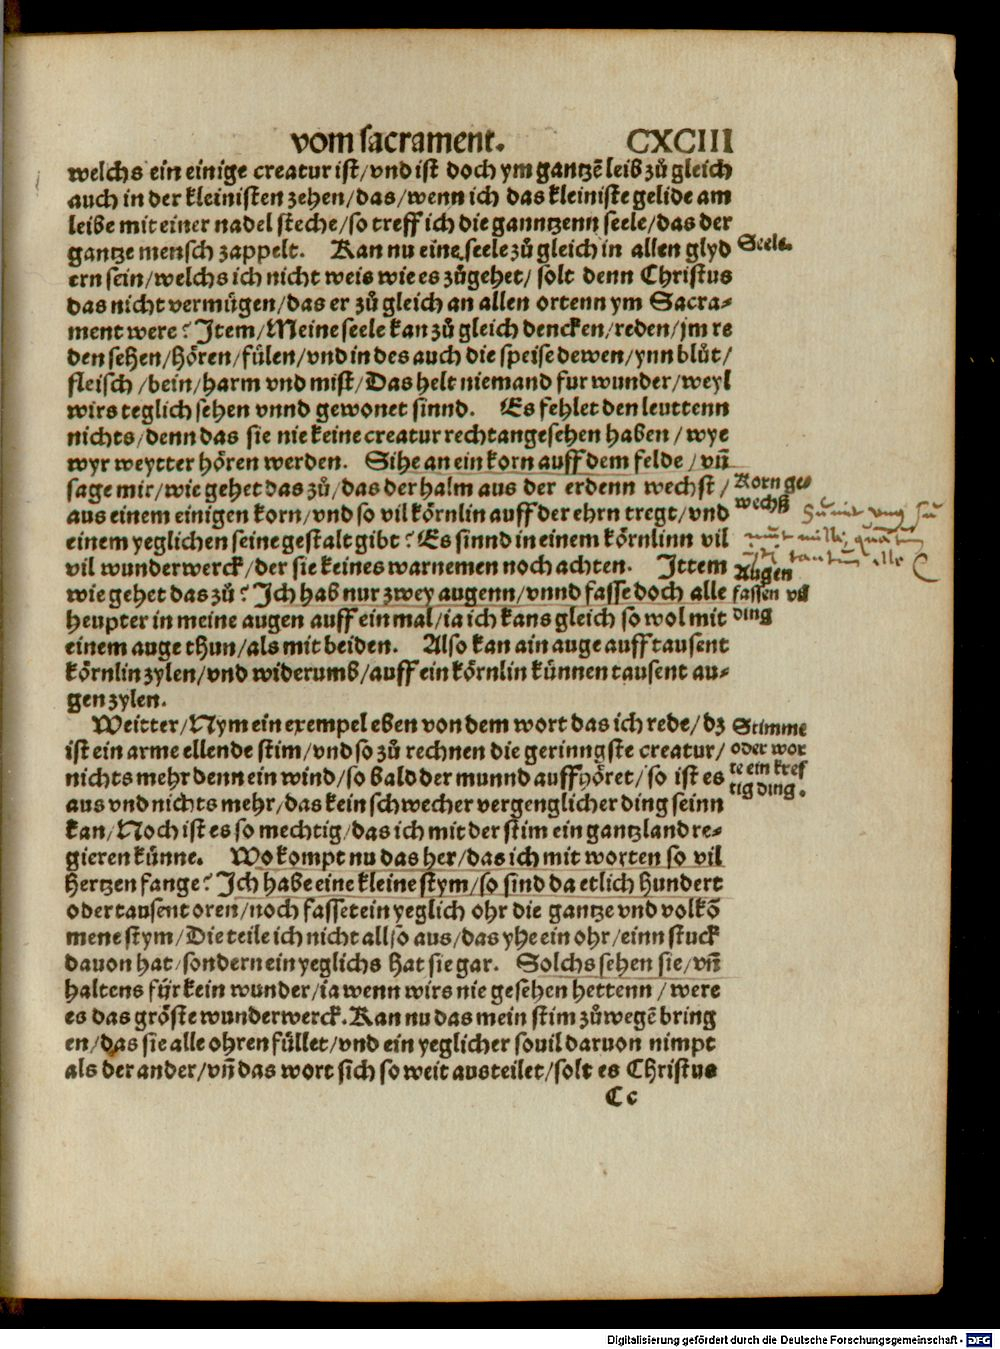 vom sacrament. CXCIII
welchs ein einige creatur ist/vnd ist doch ym gantzẽ leib zů gleich
auch in der kleinisten zehen/das/wenn ich das kleiniste gelide am
leibe mit einer nadel steche/so treff ich die ganntzenn seele/das der
gantze mensch zappelt. Kan nu eine seele zů gleich in allen glyd
Seele.
ern sein/welchs ich nicht weis wie es zůgehet/ solt denn Christus
das nicht vermügen/das er zů gleich an allen ortenn ym Sacra-
ment were? Item/Meine seele kan zů gleich dencken/reden/jm re
den sehen/hören/fülen/vnd in des auch die speise dewen/ynn blůt/
fleisch/bein/harm vnd mist/Das helt niemand fur wunder/weyl
wirs teglich sehen vnnd gewonet sinnd. Es fehlet den leuttenn
nichts/denn das sie nie keine creatur recht angesehen haben/wye
wyr weytter hören werden. Sihe an ein korn auff dem felde/vñ
sage mir/wie gehet das zů/das der halm aus der erdenn wechst/
Korn ge
wechß
aus einem einigen korn/vnd so vil körnlin auff der ehrn tregt/vnd
einem yeglichen seine gestalt gibt? Es sinnd in einem körnlinn vil
vil wunderwerck/der sie keines warnemen noch achten. Ittem
wie gehet das zů? Ich hab nur zwey augenn/vnnd fasse doch alle
Augen
fassen vil
ding
heupter in meine augen auff ein mal/ia ich kans gleich so wol mit
einem auge thun/als mit beiden. Also kan ain auge auff tausent
körnlin zylen/vnd widerumb/auff ein körnlin künnen tausent au-
gen zylen.
Weitter/Nym ein exempel eben von dem wort das ich rede/dz
Stimme
oder wor
te ein kref
tig ding.
ist ein arme ellende stim/vnd so zů rechnen die gerinngste creatur/
nichts mehr denn ein wind/so bald der munnd auffhöret/so ist es
aus vnd nichts mehr/das kein schwecher vergenglicher ding seinn
kan/Noch ist es so mechtig/das ich mit der stim ein gantz land re-
gieren künne. Wo kompt nu das her/das ich mit worten so vil
hertzen fange? Ich habe eine kleine stym/so sind da etlich hundert
oder tausent oren/noch fasset ein yeglich ohr die gantze vnd volkõ
mene stym/Die teile ich nicht allso aus/das yhe ein ohr/einn stuck
dauon hat/sondern ein yeglichs hat sie gar. Solchs sehen sie/vñ
haltens für kein wunder/ia wenn wirs nie gesehen hettenn/were
es das gröste wunderwerck. Kan nu das mein stim zů wegẽ bring
en/das sie alle ohren füllet/vnd ein yeglicher souil daruon nimpt
als der ander/vñ das wort sich so weit austeilet/solt es Christus
Cc
Digitalisierung gefördert durch die Deutsche Forschungsgemeinschaft - DFG